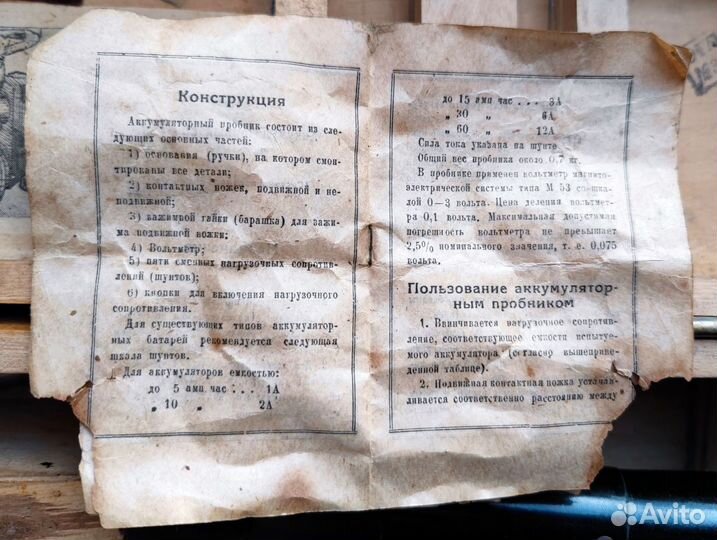 Конструкция
Аккумуляторный пробник состоит из сле-
дующих основных частей:
1) основания (ручки), на котором смон-
тированы все детали;
2) контактных ножек, подвижной и не-
подвижной;
3) зажимной гайки (барашка) для зажи-
ма подвижной ножки;
4) Вольтметр;
5) пяти сменных нагрузочных сопротив-
лений (шунтов);
6) кнопки для включения нагрузочного
сопротивления.
Для существующих типов аккумулятор-
ных батарей рекомендуется следующая
шкала шунтов.
Для аккумуляторов емкостью:
до 5 амп час . . . 1А
„ 10 „ 2А
до 15 амп час . . . 3А
„ 30 „ 6А
„ 60 „ 12А
Сила тока указана на шунте.
Общий вес пробника около 0,7 кг.
В пробнике применен вольтметр магнито-
электрической системы типа М 53 со шка-
лой 0—3 вольта. Цена деления вольтмет-
ра 0,1 вольта. Максимальная допустимая
погрешность вольтметра не превышает
2,5% номинального значения, т. е. 0,075
вольта.
Пользование аккумулятор-
ным пробником
1. Ввинчивается нагрузочное сопротив-
ление, соответствующее емкости испытуе-
мого аккумулятора (согласно вышеприве-
денной таблице).
2. Подвижная контактная ножка устанав-
ливается соответственно расстоянию между
Avito